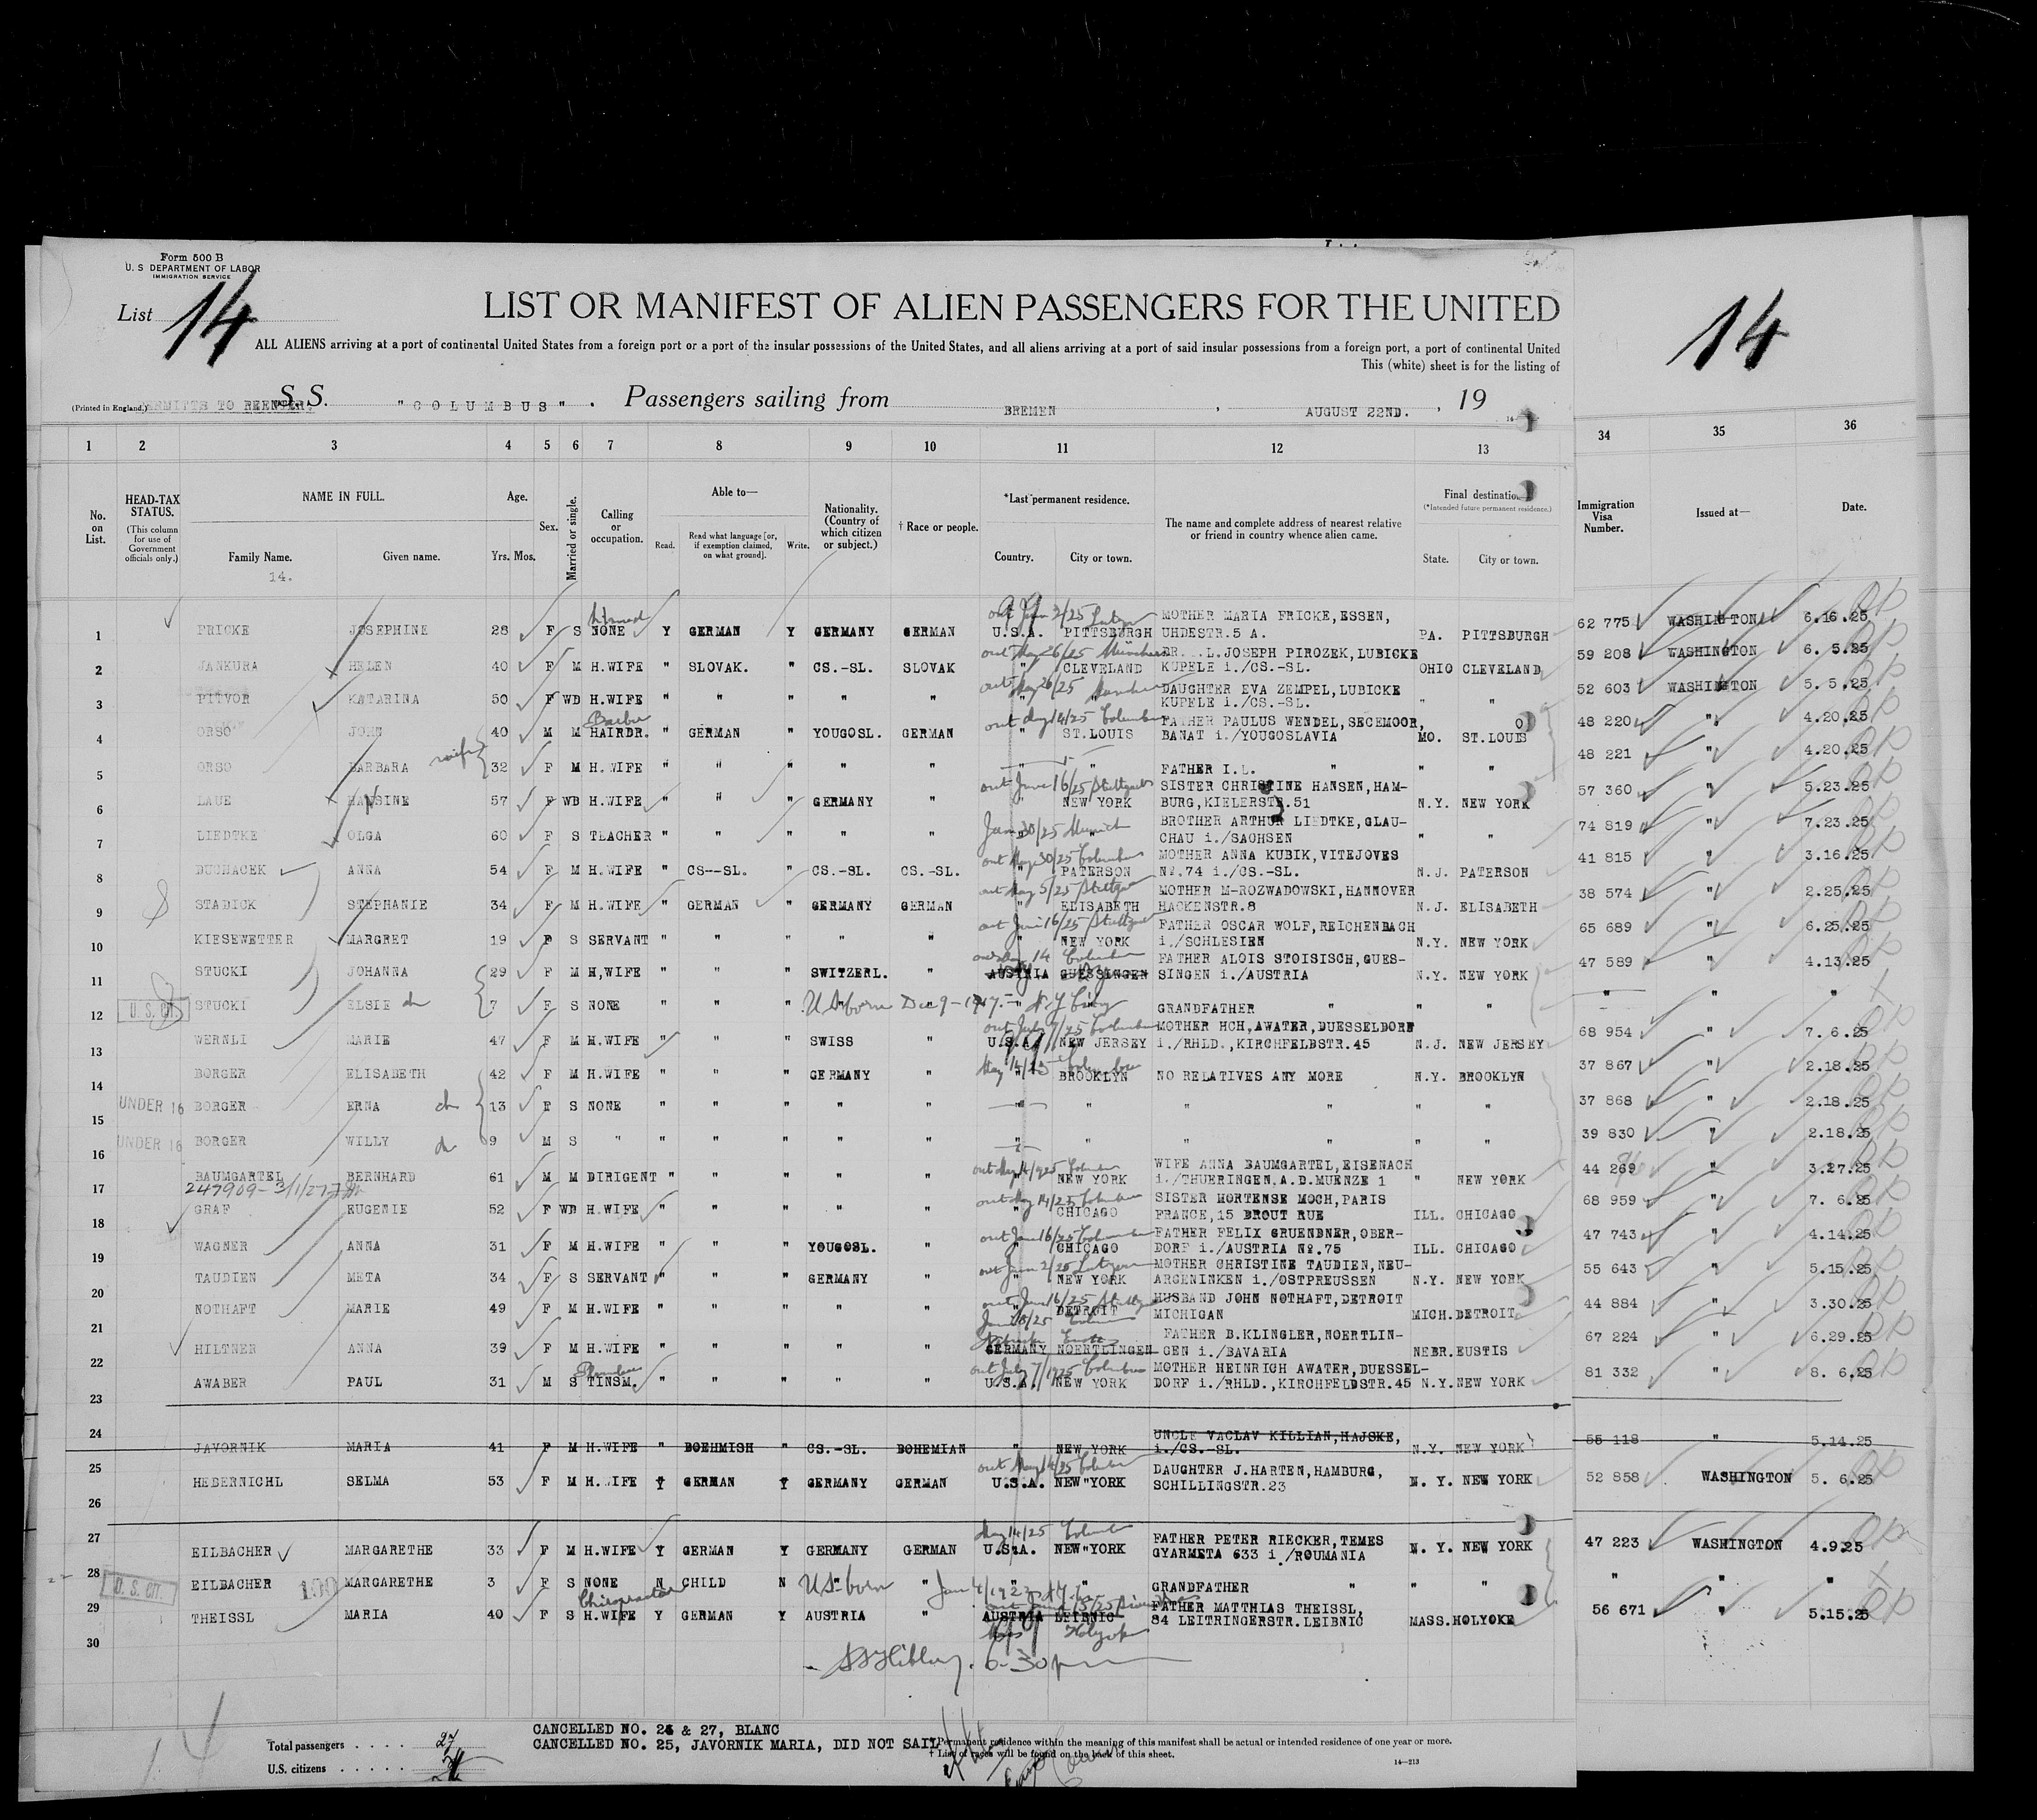 Form 500 B
U. S DEPARTMENT OF LABOR
IMMIGRATION SERVICE
List 14
LIST OR MANIFEST OF ALIEN PASSENGERS FOR THE UNITED
14
ALL ALIENS arriving at a port of continental United States from a foreign port or a port of the insular possessions of the United States, and all aliens arriving at a port of said insular possessions from a foreign port, a port of continental United
This (white) sheet is for the listing of
(Printed in England.) PERMITTS TO REENTER. S. S. "COLUMBUS". Passengers sailing from BREMEN, AUGUST 22ND., 19
1 2 3 4 5 6 7 8 9 10 11 12 13 34 35 36
No. on List.
HEAD-TAX STATUS.
(This column for use of Government officials only.)
NAME IN FULL.
Family Name. Given name.
14.
Age.
Yrs. Mos.
Sex.
Married or single.
Calling or occupation.
Able to—
Read.
Read what language [or, if exemption claimed, on what ground].
Write.
Nationality. (Country of which citizen or subject.)
† Race or people.
*Last permanent residence.
Country. City or town.
The name and complete address of nearest relative or friend in country whence alien came.
Final destination
(*Intended future permanent residence.)
State. City or town.
Immigration Visa Number.
Issued at—
Date.
out June 2/25
MOTHER MARIA FRICKE, ESSEN,
1 FRICKE JOSEPHINE 28 F S NONE Y GERMAN Y GERMANY GERMAN U.S.A. PITTSBURGH UHDESTR.5 A. PA. PITTSBURGH 62 775 WASHINGTON 6.16.25
out May 26/25 München
L.JOSEPH PIROZEK, LUBICKE
2 JANKURA HELEN 40 F M H.WIFE " SLOVAK. " CS.-SL. SLOVAK " CLEVELAND KUPELE i./CS.-SL. OHIO CLEVELAND 59 208 WASHINGTON 6. 5.25
out May 26/25
DAUGHTER EVA ZEMPEL, LUBICKE
3 PITVOR KATARINA 50 F WD H.WIFE " " " " " " " KUPELE i./CS.-SL. " " 52 603 WASHINGTON 5. 5.25
Barber
out May 14/25 Columbus
FATHER PAULUS WENDEL, SECEMOOR,
4 ORSO JOHN 40 M M HAIRDR. " GERMAN " YOUGOSL. GERMAN " ST.LOUIS BANAT i./YOUGOSLAVIA MO. ST.LOUIS 48 220 " 4.20.25
5 ORSO BARBARA wife 32 F M H.WIFE " " " " " " " FATHER I.L. " " " 48 221 " 4.20.25
out June 16/25 Stuttgart
SISTER CHRISTINE HANSEN, HAM-
6 LAUE HANSINE 57 F WD H.WIFE " " " GERMANY " " NEW YORK BURG, KIELERSTR.51 N.Y. NEW YORK 57 360 " 5.23.25
June 30/25 Munich
BROTHER ARTHUR LIEDTKE, GLAU-
7 LIEDTKE OLGA 60 F S TEACHER " " " " " " " CHAU i./SACHSEN " " 74 819 " 7.23.25
out May 30/25 Columbus
MOTHER ANNA KUBIK, VITEJOVES
8 DUCHACEK ANNA 54 F M H.WIFE " CS--SL. " CS.-SL. CS.-SL. " PATERSON No.74 i./CS.-SL. N.J. PATERSON 41 815 " 3.16.25
out May 5/25 Stuttgart
MOTHER M-ROZWADOWSKI, HANNOVER
9 STADICK STEPHANIE 34 F M H.WIFE " GERMAN " GERMANY GERMAN " ELISABETH HACKENSTR.8 N.J. ELISABETH 38 574 " 2.25.25
out June 16/25 Stuttgart
FATHER OSCAR WOLF, REICHENBACH
10 KIESEWETTER MARGRET 19 F S SERVANT " " " " " " NEW YORK i./SCHLESIEN N.Y. NEW YORK 65 689 " 6.25.25
out May 14 Columbus
FATHER ALOIS STOISISCH, GUES-
11 STUCKI JOHANNA 29 F M H,WIFE " " " SWITZERL. " AUSTRIA GUESSINGEN SINGEN i./AUSTRIA N.Y. NEW YORK 47 589 " 4.13.25
12 U. S. CIT. STUCKI ELSIE ch 7 F S NONE " " " U.S. born Dec 9-1917- N. Y City GRANDFATHER " " " " " "
out July 7/25 Columbus
MOTHER HCH, AWATER, DUESSELDORF
13 WERNLI MARIE 47 F M H.WIFE " " " SWISS " U.S.A. NEW JERSEY i./RHLD., KIRCHFELDSTR.45 N.J. NEW JERSEY 68 954 " 7. 6.25
May 14/25 Columbus
14 BORGER ELISABETH 42 F M H.WIFE " " " GERMANY " " BROOKLYN NO RELATIVES ANY MORE N.Y. BROOKLYN 37 867 " 2.18.25
15 UNDER 16 BORGER ERNA ch 13 F S NONE " " " " " " " " " " " 37 868 " 2.18.25
16 UNDER 16 BORGER WILLY ch 9 M S " " " " " " " " " " " " 39 830 " 2.18.25
out May 14/1925 Columbus
WIFE ANNA BAUMGARTEL, EISENACH
17 BAUMGARTEL BERNHARD 61 M M DIRIGENT " " " " " " NEW YORK i./THUERINGEN, A.D.MUENZE 1 " NEW YORK 44 269 " 3.27.25
247909-3/1/27
out May 14/25 Columbus
SISTER HORTENSE MOCH, PARIS
18 GRAF EUGENIE 52 F WD H.WIFE " " " " " " CHICAGO FRANCE, 15 BROUT RUE ILL. CHICAGO 68 959 " 7. 6.25
out June 16/25 Columbus
FATHER FELIX GRUENDNER, OBER-
19 WAGNER ANNA 31 F M H.WIFE " " " YOUGOSL. " " CHICAGO DORF i./AUSTRIA No.75 ILL. CHICAGO 47 743 " 4.14.25
out June 2/25 Lutzow
MOTHER CHRISTINE TAUDIEN, NEU-
20 TAUDIEN META 34 F S SERVANT " " " GERMANY " " NEW YORK ARGENINKEN i./OSTPREUSSEN N.Y. NEW YORK 55 643 " 5.15.25
out June 16/25 Stuttgart
HUSBAND JOHN NOTHAFT, DETROIT
21 NOTHAFT MARIE 49 F M H.WIFE " " " " " " DETROIT MICHIGAN MICH. DETROIT 44 884 " 3.30.25
Nebraska Eustis
FATHER B.KLINGLER, NOERTLIN-
22 HILTNER ANNA 39 F M H.WIFE " " " " " GERMANY NOERTLINGEN GEN i./BAVARIA NEBR. EUSTIS 67 224 " 6.29.25
Plumber
out July 7/1925 Columbus
MOTHER HEINRICH AWATER, DUESSEL-
23 AWABER PAUL 31 M S TINSM. " " " " " U.S.A. NEW YORK DORF i./RHLD., KIRCHFELDSTR.45 N.Y. NEW YORK 81 332 " 8. 6.25
24
UNCLE VACLAV KILLIAN, HAJSKE,
25 JAVORNIK MARIA 41 F M H.WIFE " BOEHMISH " CS.-SL. BOHEMIAN " NEW YORK i./CS.-SL. N.Y. NEW YORK 55 118 " 5.14.25
out May 14/25 Columbus
DAUGHTER J.HARTEN, HAMBURG,
26 HEBERNICHL SELMA 53 F M H.WIFE Y GERMAN Y GERMANY GERMAN U.S.A. NEW YORK SCHILLINGSTR.23 N. Y. NEW YORK 52 858 WASHINGTON 5. 6.25
27
May 14/25 Columbus
FATHER PETER RIECKER, TEMES
28 EILBACHER MARGARETHE 33 F M H.WIFE Y GERMAN Y GERMANY GERMAN U.S.A. NEW YORK GYARMETA 633 i./ROUMANIA N. Y. NEW YORK 47 223 WASHINGTON 4.9.25
29 U. S. CIT. EILBACHER MARGARETHE 3 F S NONE N CHILD N U.S. born " Jan 4/1922 N.Y. GRANDFATHER " " " " " "
Chiropractor
FATHER MATTHIAS THEISSL,
30 THEISSL MARIA 40 F S H.WIFE Y GERMAN Y AUSTRIA " AUSTRIA LEIBNIC 84 LEITRINGERSTR.LEIBNIC MASS. HOLYOKE 56 671 " 5.15.25
Mass Holyoke
6-30 pm
14
CANCELLED NO. 26 & 27, BLANC
CANCELLED NO. 25, JAVORNIK MARIA, DID NOT SAIL
Total passengers . . . . 27
U.S. citizens . . . . .
* Permanent residence within the meaning of this manifest shall be actual or intended residence of one year or more.
† List of races will be found on the back of this sheet.
14—213